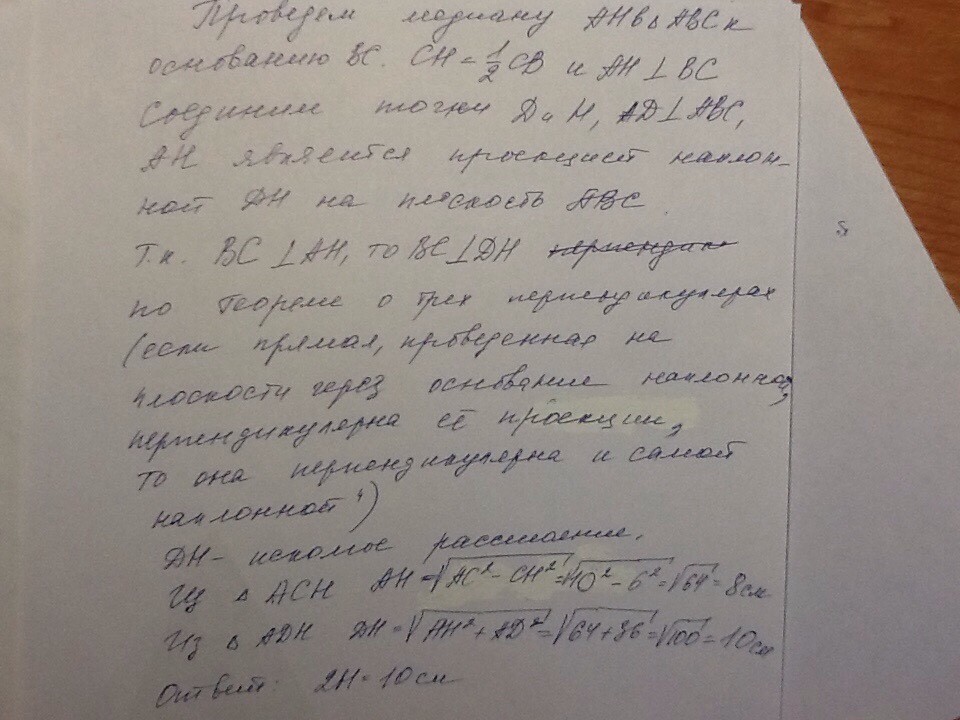 Проведем медиану AH в △ ABC к
основанию BC. CH = 1/2 CB и AH ⊥ BC
Соединим точки D и H, AD ⊥ ABC,
AH является проекцией наклон-
ной DH на плоскость ABC.
Т.к. BC ⊥ AH, то BC ⊥ DH перпендик
по теореме о трех перпендикулярах
(если прямая, проведенная на
плоскости через основание наклонной,
перпендикулярна её проекции,
то она перпендикулярна и самой
наклонной")
DH - искомое расстояние.
Из △ ACH AH = √AC² - CH² = √10² - 6² = √64 = 8см
Из △ ADH DH = √AH² + AD² = √64 + 36 = √100 = 10см
Ответ: DH = 10см